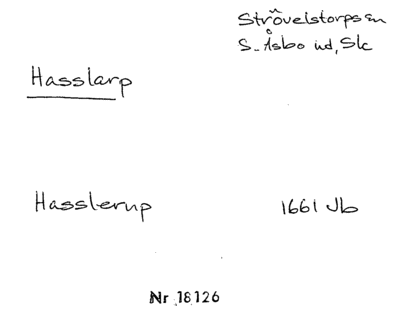 Strövelstorps sn
S. Åsbo hd, Slc
Hasslarp
Hasslerup 1661 Jb
Nr 18126